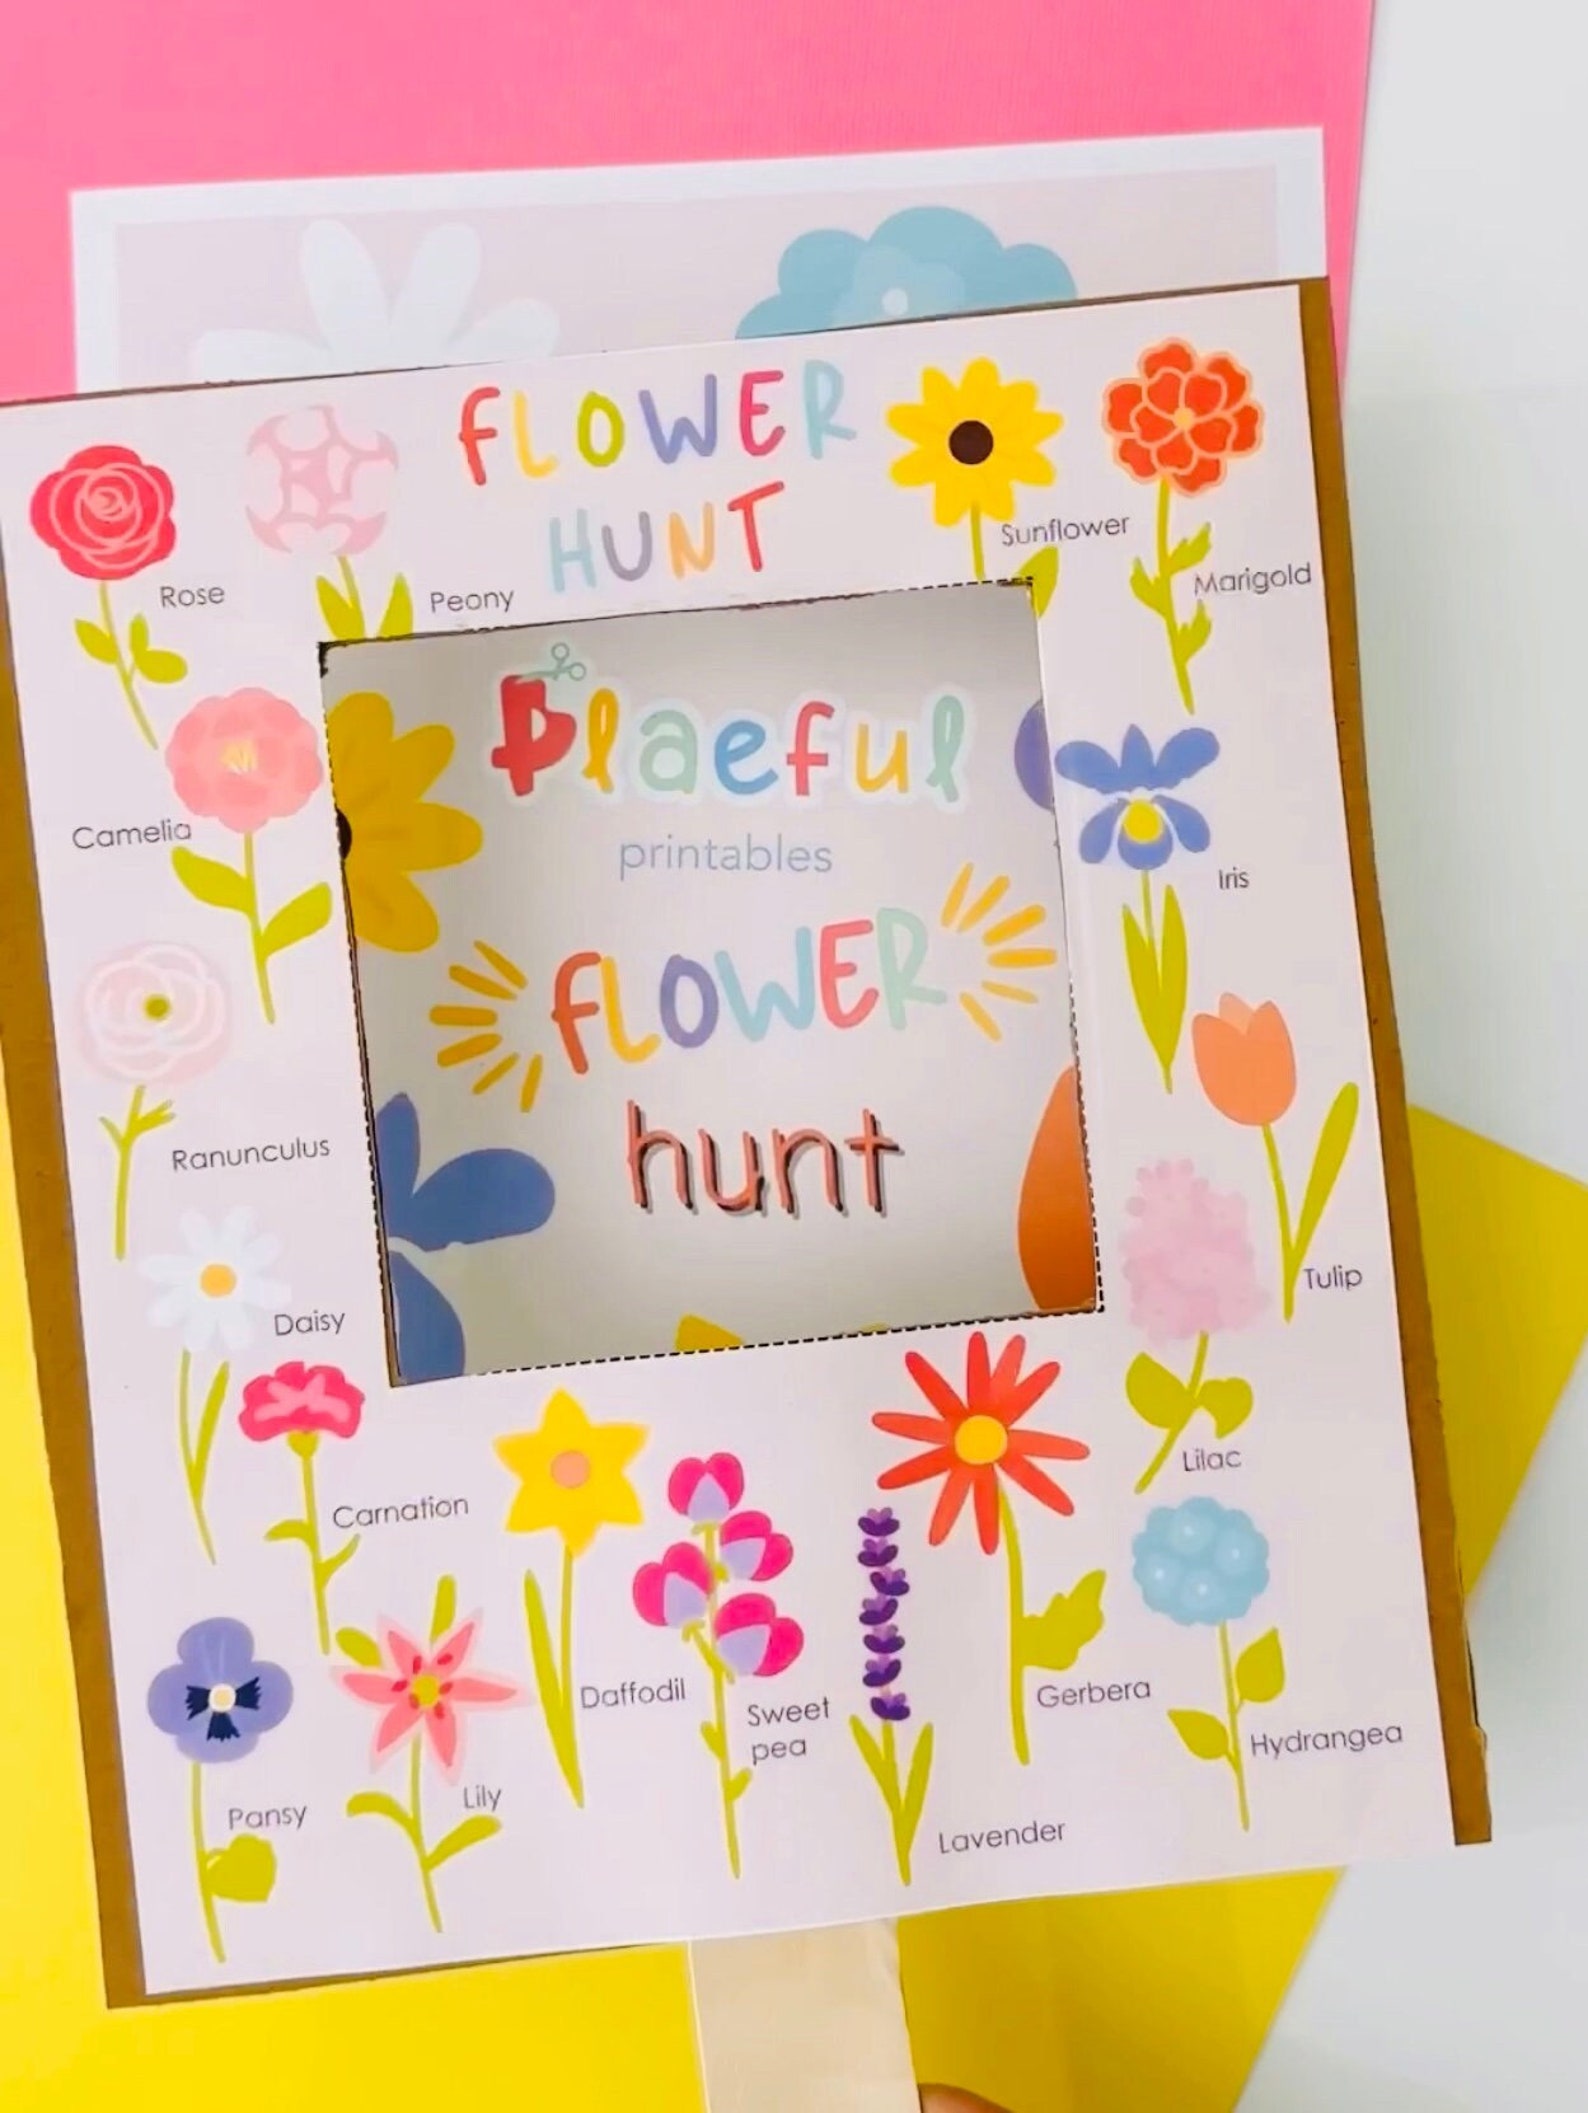 FLOWER
HUNT
Rose
Peony
Sunflower
Marigold
Plaeful
printables
Camelia
Iris
FLOWER
hunt
Ranunculus
Daisy
Tulip
Carnation
Lilac
Daffodil
Sweet
pea
Gerbera
Hydrangea
Pansy
Lily
Lavender